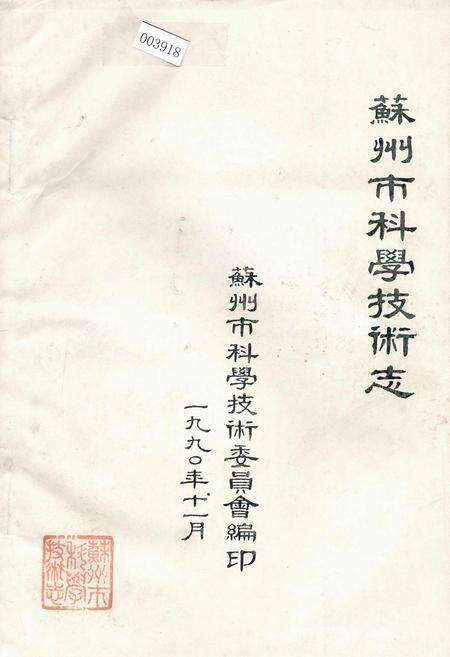 003918
蘇州市科學技術志
蘇州市科學技術委員會編印
一九九〇年十一月
蘇州市
科學
技術志